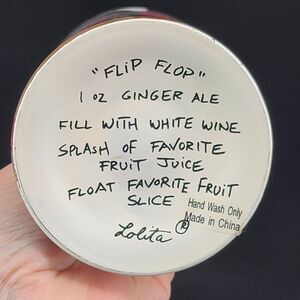 "FLIP FLOP"
1 OZ GINGER ALE
FILL WITH WHITE WINE
SPLASH OF FAVORITE
FRUIT JUICE
FLOAT FAVORITE FRUIT
SLICE
Hand Wash Only
Made in China
Lolita ®